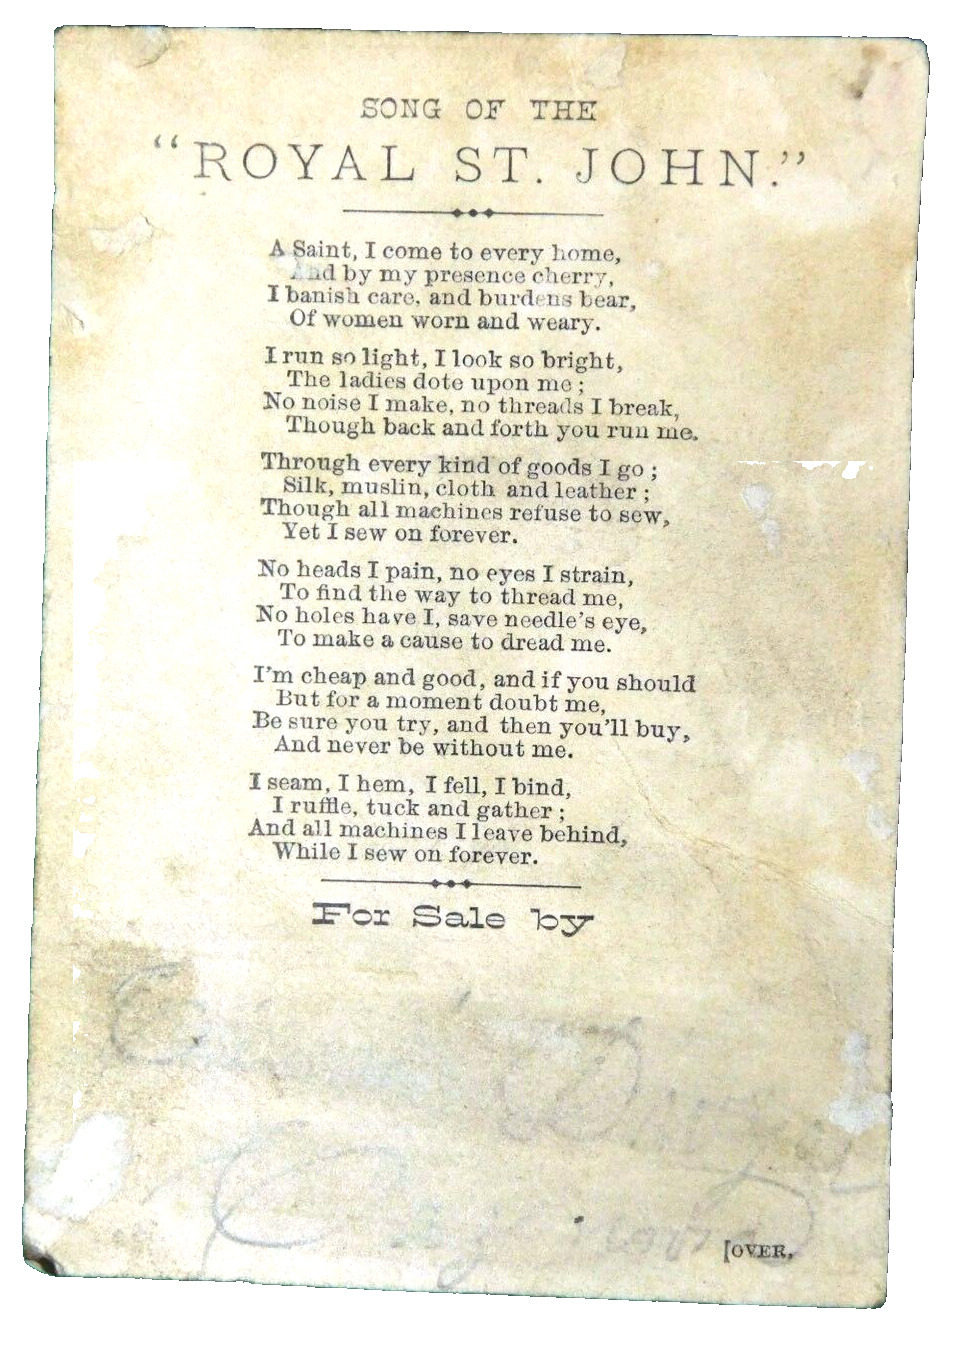 SONG OF THE
"ROYAL ST. JOHN."
A Saint, I come to every home,
And by my presence cherry,
I banish care, and burdens bear,
Of women worn and weary.
I run so light, I look so bright,
The ladies dote upon me;
No noise I make, no threads I break,
Though back and forth you run me.
Through every kind of goods I go;
Silk, muslin, cloth and leather;
Though all machines refuse to sew,
Yet I sew on forever.
No heads I pain, no eyes I strain,
To find the way to thread me,
No holes have I, save needle's eye,
To make a cause to dread me.
I'm cheap and good, and if you should
But for a moment doubt me,
Be sure you try, and then you'll buy,
And never be without me.
I seam, I hem, I fell, I bind,
I ruffle, tuck and gather;
And all machines I leave behind,
While I sew on forever.
For Sale by
[OVER,